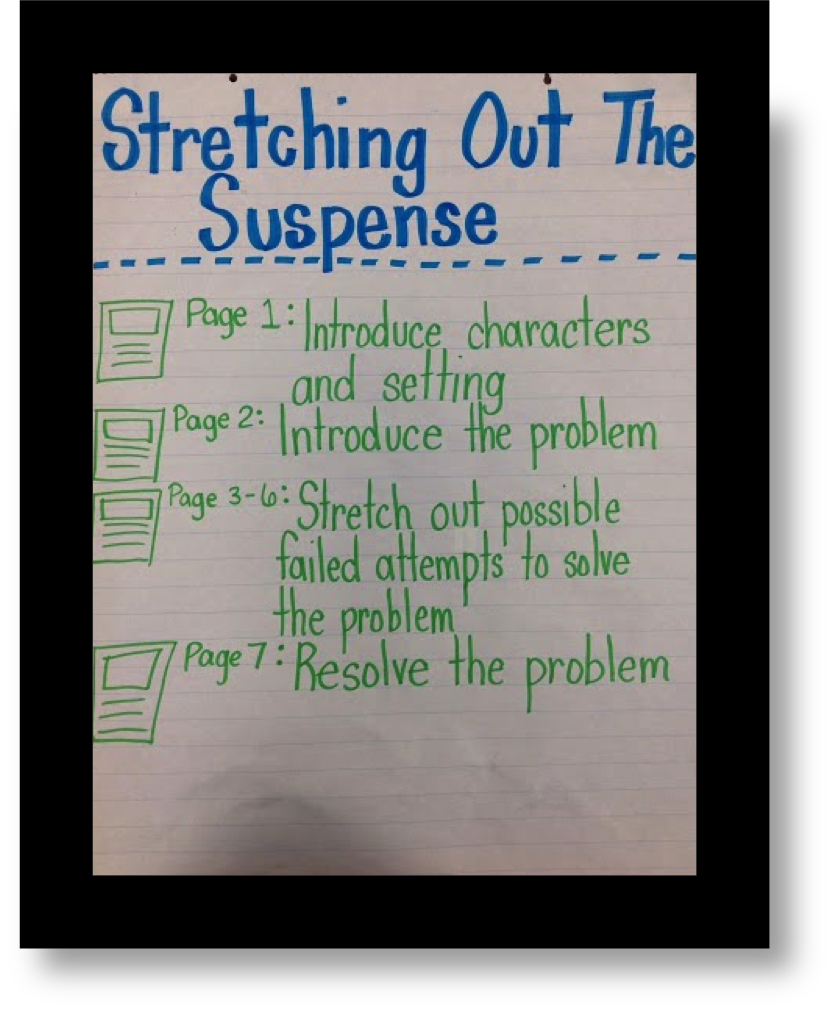 Stretching Out The
Suspense
Page 1: Introduce characters
and setting
Page 2: Introduce the problem
Page 3-6: Stretch out possible
failed attempts to solve
the problem
Page 7: Resolve the problem